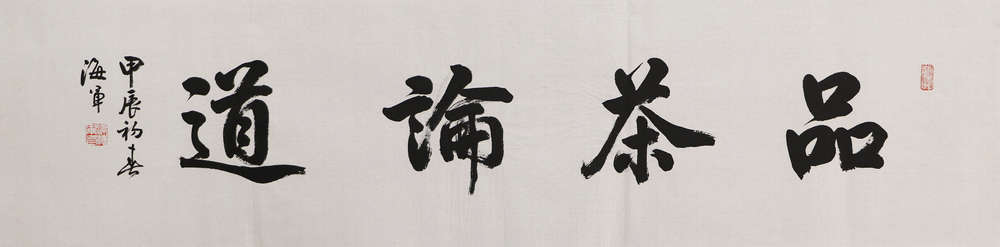 品茶論道
甲辰初春
海軍